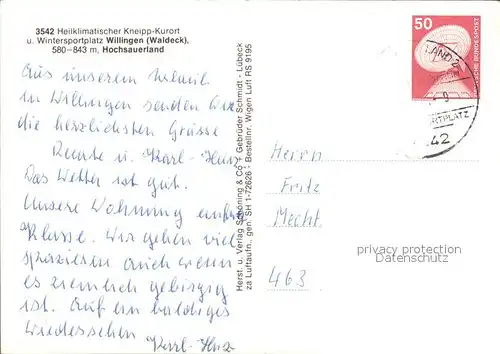 3542 Heilklimatischer Kneipp-Kurort
u. Wintersportplatz Willingen (Waldeck),
580-843 m, Hochsauerland
Aus unserem
in Willingen senden
die herzlichsten Grüsse
Renate u. Karl-Heinz
Das Wetter ist gut.
Unsere Wohnung einfach
Klasse. Wir gehen viel
spazieren auch wenn
es ziemlich gebirgig
ist. Auf ein baldiges
Wiedersehen Karl-Heinz
Herst. u. Verlag Schöning & Co + Gebrüder Schmidt - Lübeck
za Luftaufn., gen. SH 1-72626 - Bestellnr. Wigen Luft RS 9195
50
DEUTSCHE BUNDESPOST
LAND 2
RTPLATZ
42
Herrn
Fritz
Mecht.
463
privacy protection
Datenschutz